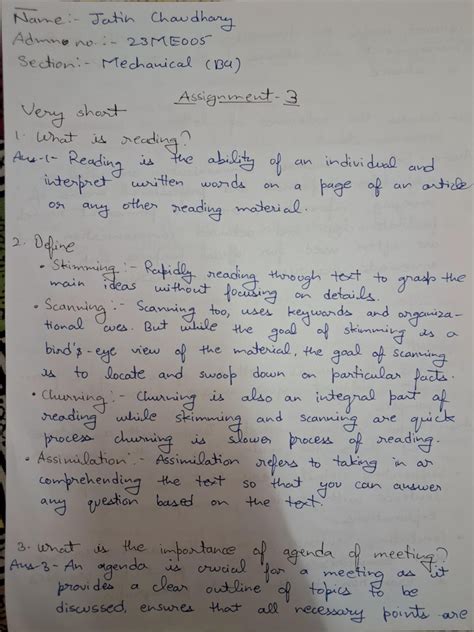 Name:- Jatin Chaudhary
Admno no.:- 23ME005
Section:- Mechanical (B4)
Assignment-3
Very short
1. What is reading?
Ans-1- Reading is the ability of an individual and
interpret written words on a page of an article
or any other reading material.
2. Define
• Skimming:- Rapidly reading through text to grasp the
main ideas without focusing on details.
• Scanning:- Scanning too, uses keywards and organiza-
tional cues. But while the goal of skimming is a
bird's-eye view of the material, the goal of scanning
is to locate and swoop down on particular facts.
• Churning:- Churning is also an integral part of
reading while skimming and scanning are quick
process churning is slower process of reading.
• Assimilation:- Assimilation refers to taking in or
comprehending the text so that you can answer
any question based on the text.
3. What is the importance of agenda of meeting?
Ans-3- An agenda is crucial for a meeting as it
provides a clear outline of topics to be
discussed, ensures that all necessary points are